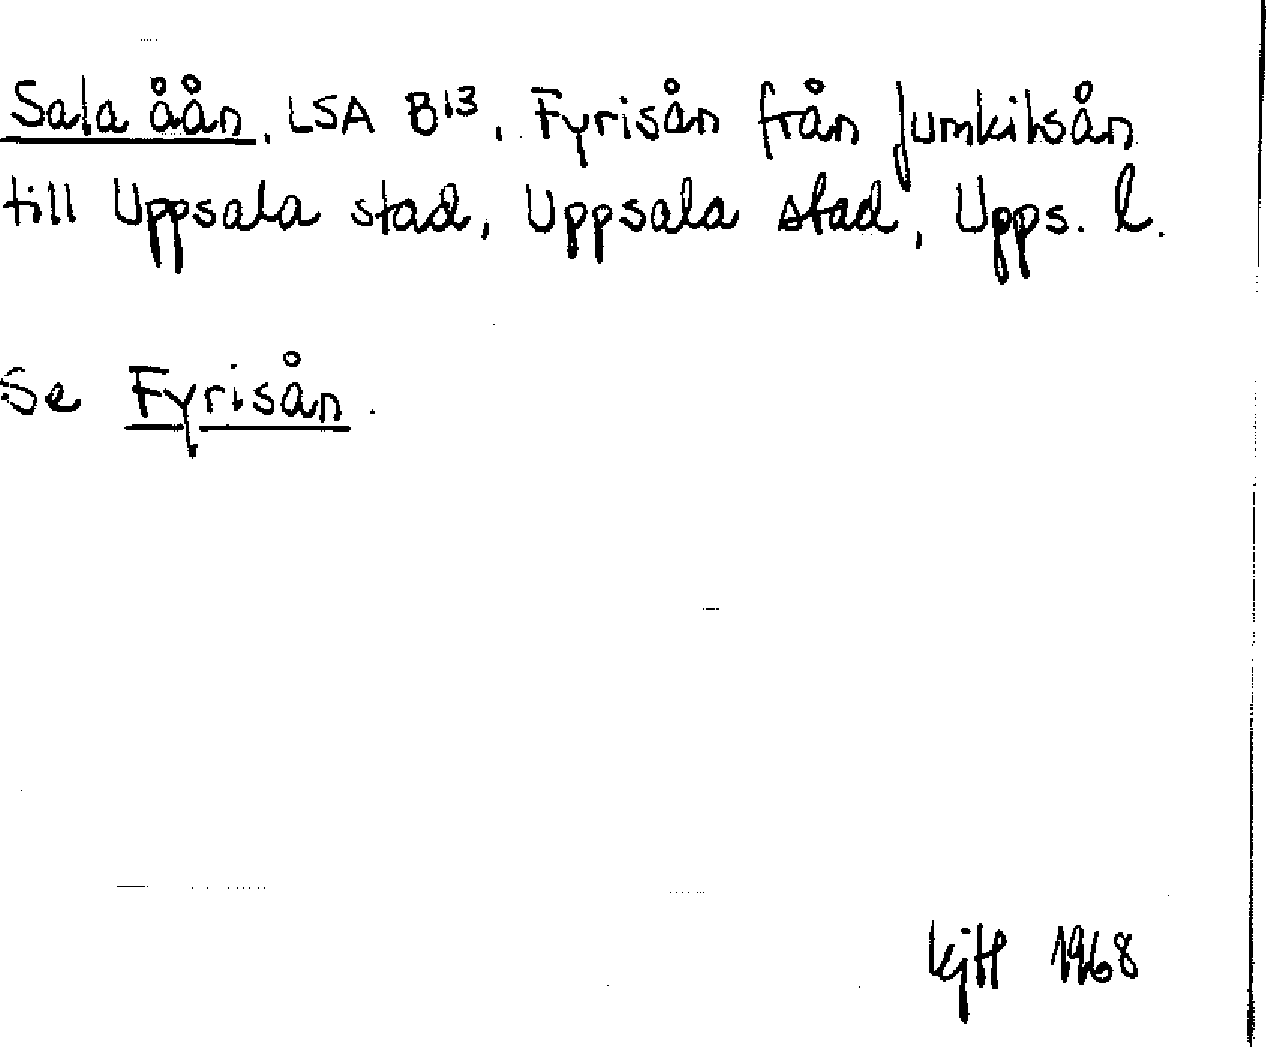 Sala åån, LSA B¹³, Fyrisån från Jumkilsån
till Uppsala stad, Uppsala stad, Upps. l.
Se Fyrisån.
1968